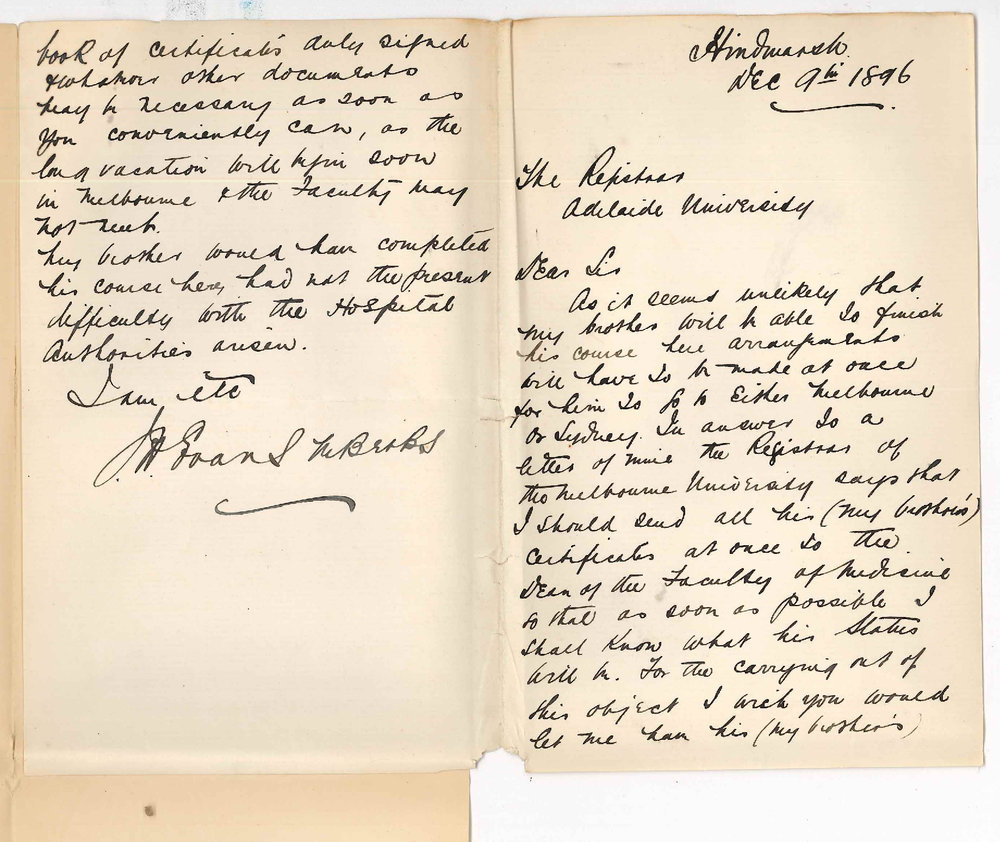 Hindmarsh
Dec 9th 1896
The Registrar
Adelaide University
Dear Sir
As it seems unlikely that
my brother will be able to finish
his course here arrangements
will have to be made at once
for him to go to either Melbourne
or Sydney. In answer to a
letter of mine the Registrar of
the Melbourne University says that
I should send all his (my brother's)
certificates at once to the
Dean of the Faculty of Medicine
so that as soon as possible I
shall know what his status
will be. For the carrying out of
this object I wish you would
let me have his (my brother's)
book of certificates duly signed
& whatever other documents
may be necessary as soon as
you conveniently can, as the
long vacation will begin soon
in Melbourne & the Faculty may
not meet.
My brother would have completed
his course here, had not the present
difficulty with the Hospital
Authorities arisen.
I am etc
J. H. Evans